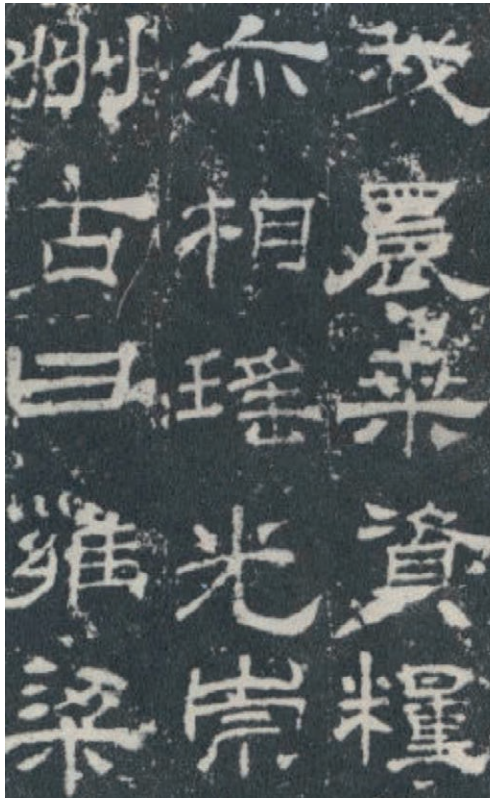 我農桑資糧
亦相瑤光崇
州古曰雍梁